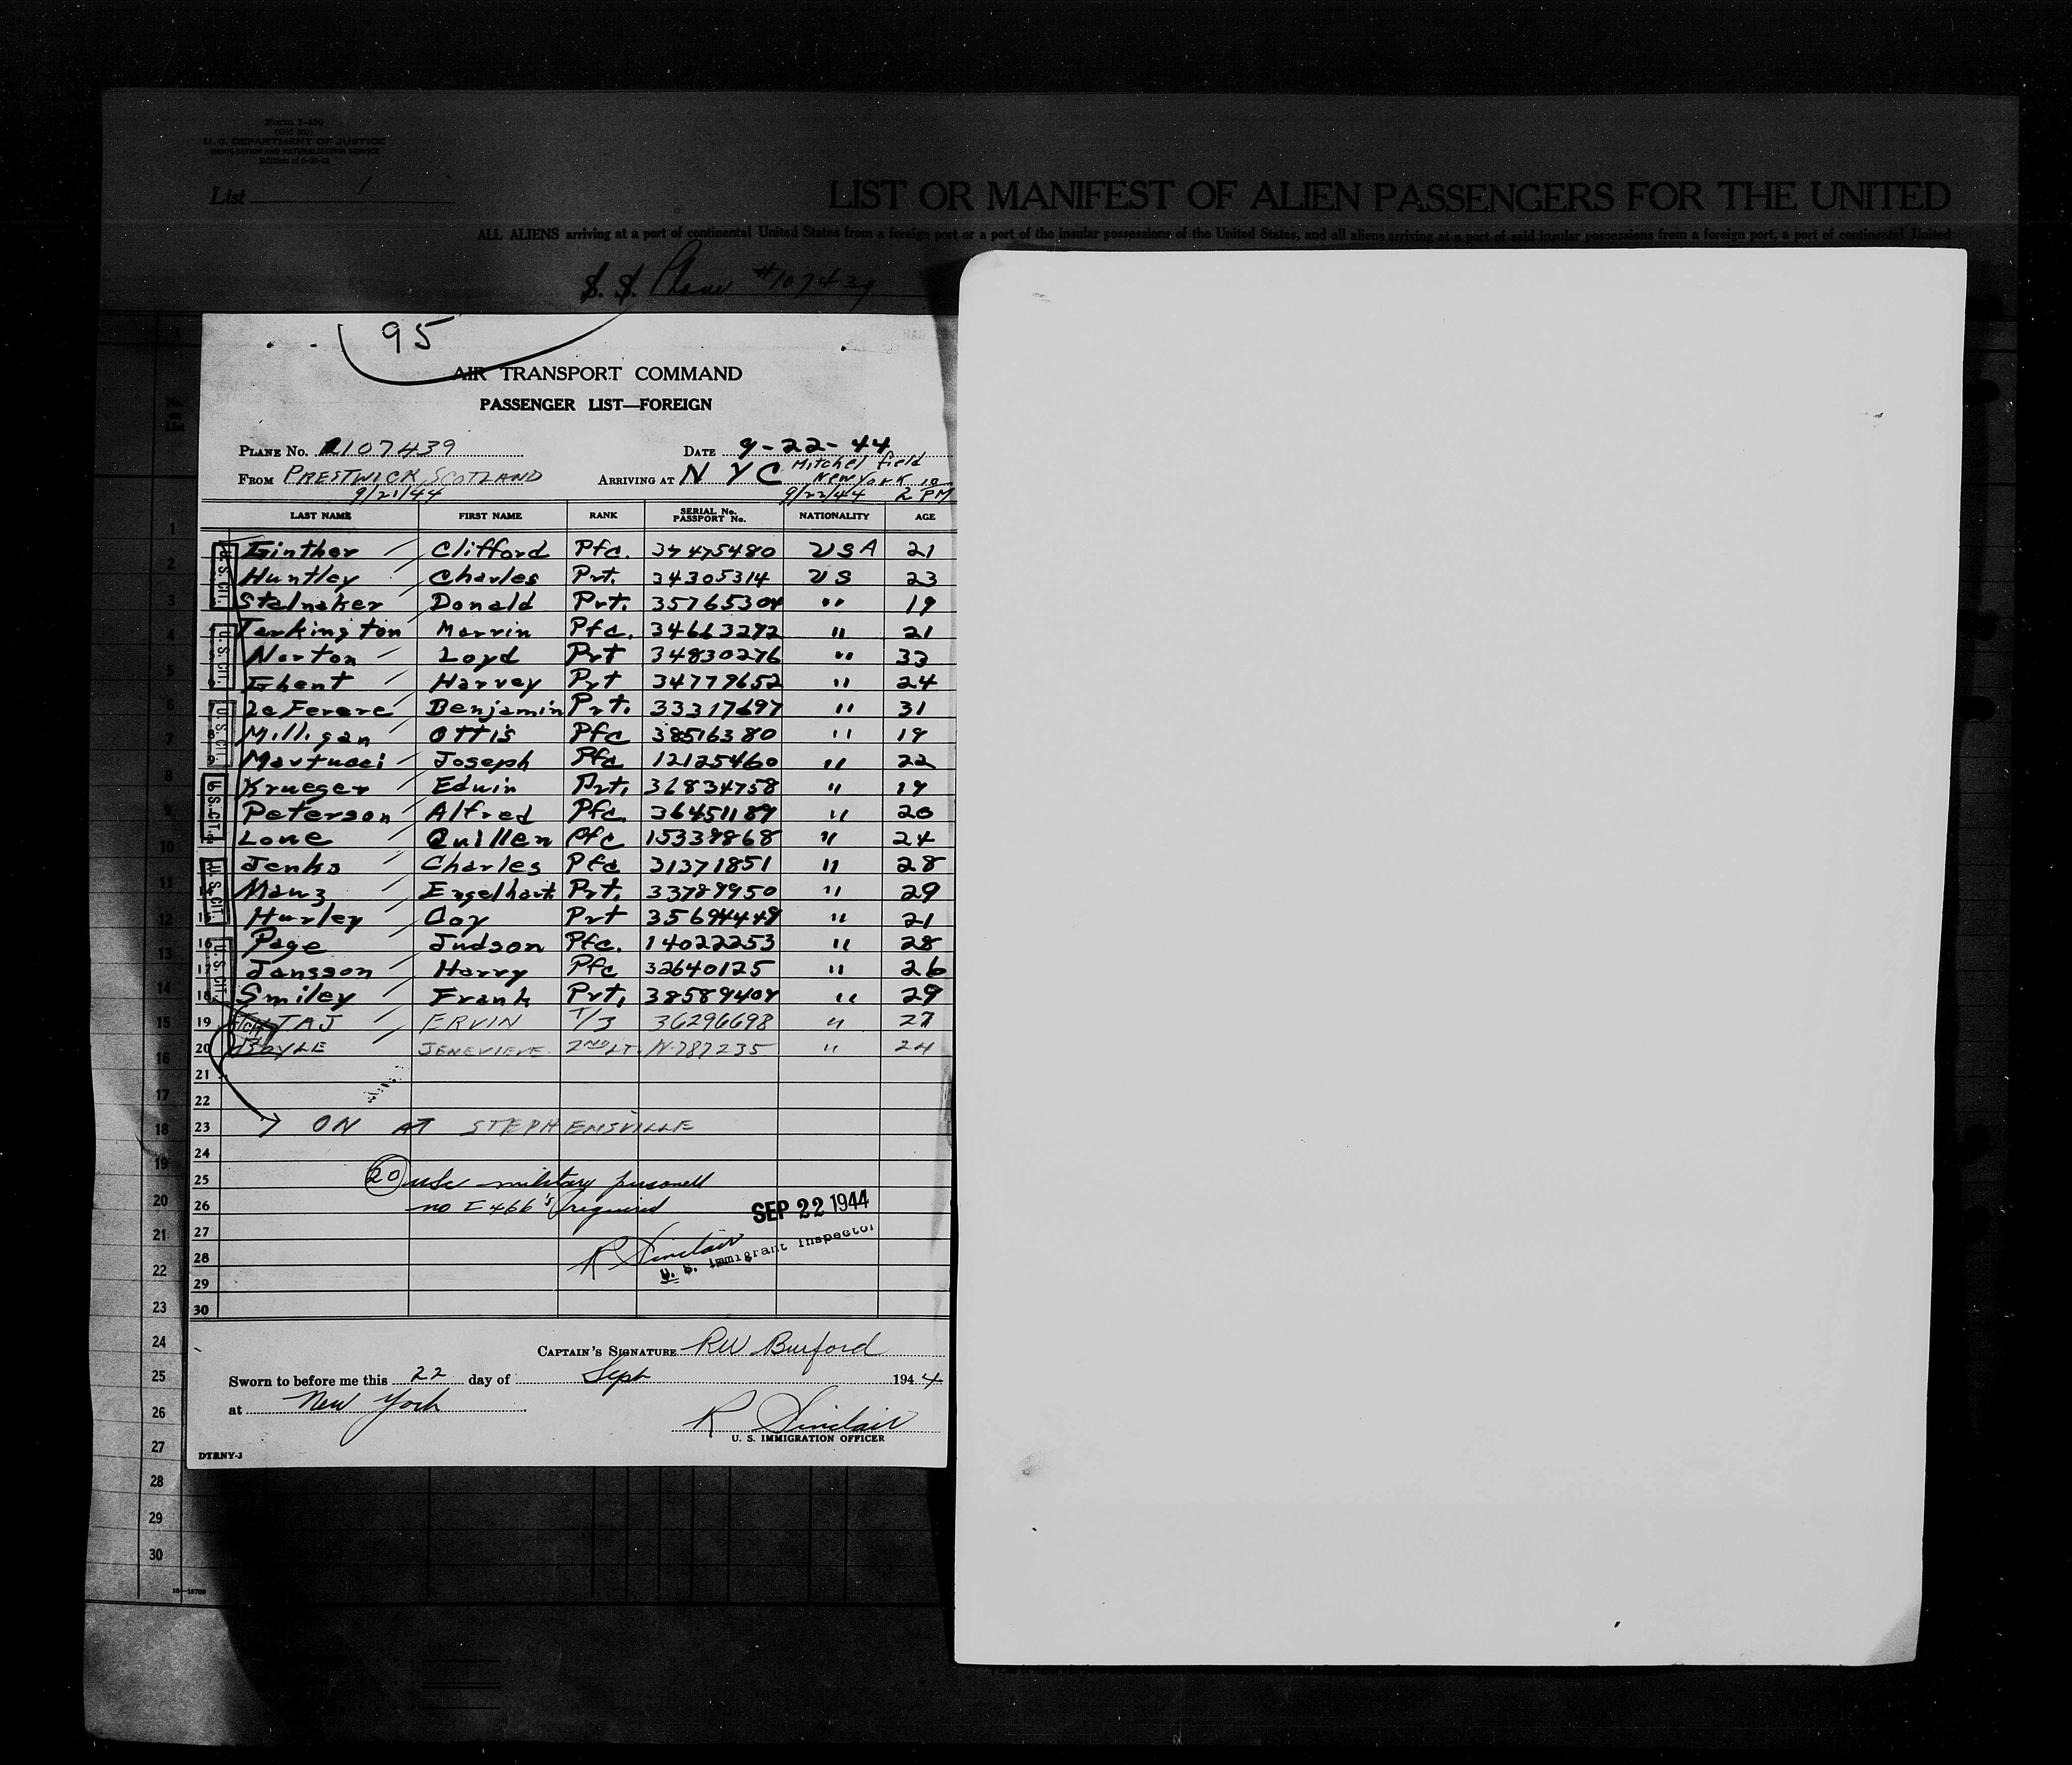 Form I-400
(Old 500)
U. S. DEPARTMENT OF JUSTICE
IMMIGRATION AND NATURALIZATION SERVICE
List 1
LIST OR MANIFEST OF ALIEN PASSENGERS FOR THE UNITED
ALL ALIENS arriving at a port of continental United States from a foreign port or a port of the insular possessions of the United States, and all aliens arriving at a port of said insular possessions from a foreign port, a port of continental United
S. S. Plane #107439
95
AIR TRANSPORT COMMAND
PASSENGER LIST—FOREIGN
PLANE No. 2107439 DATE 9-22-44
FROM PRESTWICK, SCOTLAND ARRIVING AT N Y C Mitchel Field New York
9/21/44 9/22/44 2 PM
LAST NAME FIRST NAME RANK SERIAL No. PASSPORT No. NATIONALITY AGE
Ginther Clifford Pfc. 37475480 USA 21
Huntley Charles Prt. 34305314 US 23
Stalnaker Donald Prt. 35765304 " 19
Terkington Marvin Pfc. 34663292 " 21
Norton Loyd Prt 34830276 " 33
Ghent Harvey Prt 34779652 " 24
LeFevere Benjamin Prt. 33317697 " 31
Milligan Ottis Pfc 38516380 " 19
Martucci Joseph Pfc 12125460 " 22
Krueger Edwin Prt. 36834758 " 19
Peterson Alfred Pfc. 36451189 " 20
Lowe Quillen Pfc 15339868 " 24
Jenks Charles Pfc 31371851 " 28
14 Manz Engelhart Prt. 33789950 " 29
15 Hurley Coy Prt 35694449 " 21
16 Page Judson Pfc. 14022253 " 28
17 Jansson Harry Pfc 32640125 " 26
18 Smiley Frank Prt. 38589409 " 29
19 ERVIN T/3 36296698 " 27
20 BOYLE JENEVIEVE 2ND LT. N-787235 " 24
21
22
23 ON AT STEPHENSVILLE
24
25 20 usc military personell
26 no I 466's required
SEP 22 1944
27
28 R Sinclair
U. S. Immigrant Inspector
29
30
CAPTAIN'S SIGNATURE RW Burford
Sworn to before me this 22 day of Sept 1944
at New York
R Sinclair
U. S. IMMIGRATION OFFICER
DTRNY-3
U. S. CIT.
U. S. CIT.
U. S. CIT.
U. S. CIT.
U. S. CIT.
U. S. CIT.
No. on List
1
2
3
4
5
6
7
8
9
10
11
12
13
14
15
16
17
18
19
20
21
22
23
24
25
26
27
28
29
30
16—18700